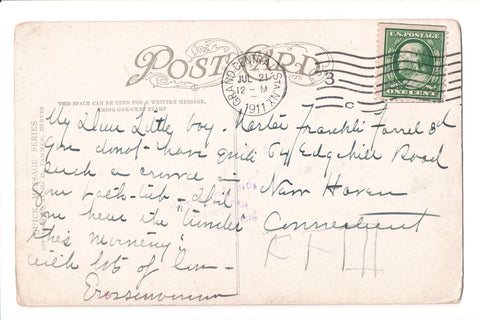 POST CARD
THIS SPACE CAN BE USED FOR A WRITTEN MESSAGE,
USING ONE-CENT STAMP
GRAND CENTRAL STA. N.Y.
JUL 21
12-M
1911
3
C
U.S. POSTAGE
ONE CENT
My Dear Little boy-
You do not have quite
such a
your bath-tub-
you hear the "
this morning"
with lots of love-
Master Franklin Farrel 3d
64 Edgehill Road
New Haven
Connecticut